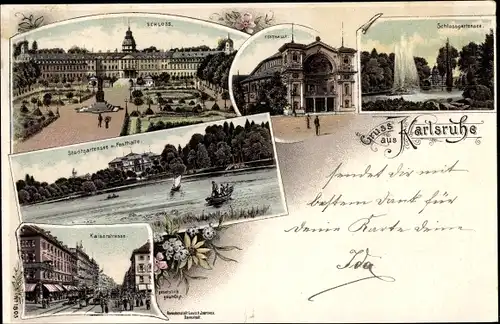 SCHLOSS.
FESTHALLE
Schlossgartensee.
Gruss
aus Karlsruhe
Stadtgartensee u. Festhalle.
sendet dir mit
bestem Dank für
deine Karte deine
Ida
Kaiserstrasse.